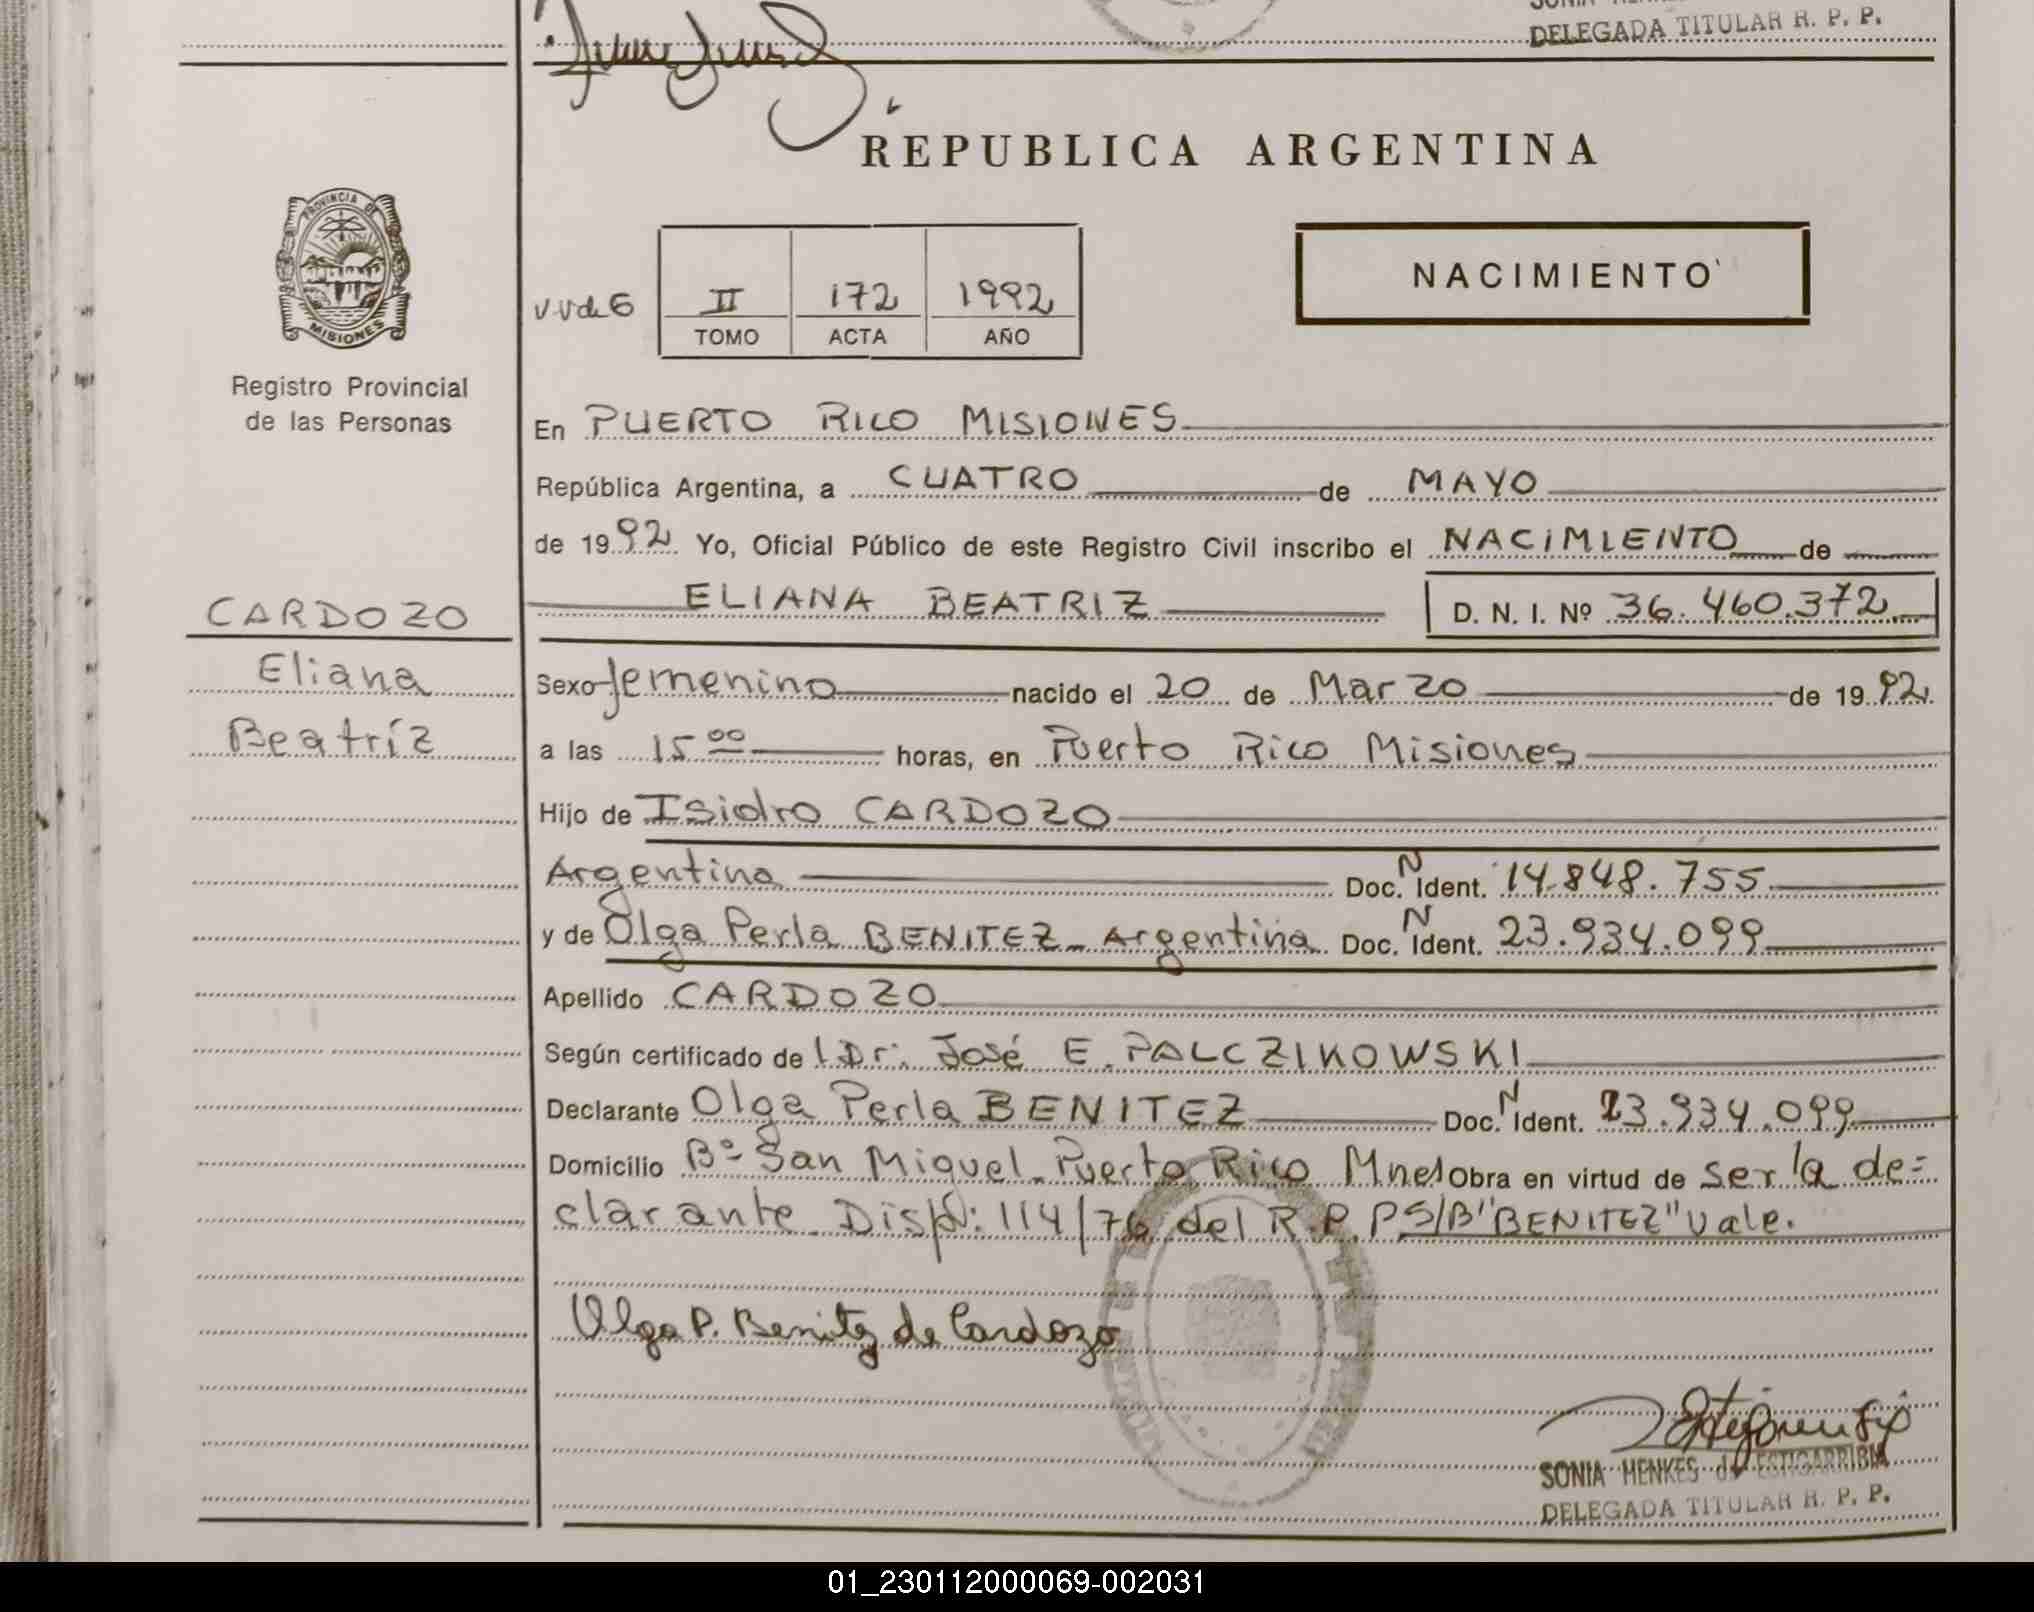 DELEGADA TITULAR R. P. P.
REPUBLICA ARGENTINA
PROVINCIA DE
MISIONES
Registro Provincial
de las Personas
II 172 1992
TOMO ACTA AÑO
NACIMIENTO
En PUERTO RICO MISIONES
República Argentina, a CUATRO de MAYO
de 1992 Yo, Oficial Público de este Registro Civil inscribo el NACIMIENTO de
ELIANA BEATRIZ D. N. I. Nº 36.460.372
CARDOZO
Eliana
Beatríz
Sexo femenino nacido el 20 de Marzo de 1992.
a las 15 00 horas, en Puerto Rico Misiones
Hijo de Isidro CARDOZO
Argentina Doc. N Ident. 14.848.755
y de Olga Perla BENITEZ - Argentina Doc. N Ident. 23.934.099
Apellido CARDOZO
Según certificado de l Dr: José E. PALCZIKOWSKI
Declarante Olga Perla BENITEZ Doc. N Ident. 23.934.099
Domicilio Bº San Miguel - Puerto Rico Mnes Obra en virtud de ser la de=
clarante. Disp: 114/76 del R.P.P S/B "BENITEZ" Vale.
Olga P. Benitez de Cardozo
SONIA HENKES de ESTIGARRIBIA
DELEGADA TITULAR R. P. P.
01_230112000069-002031